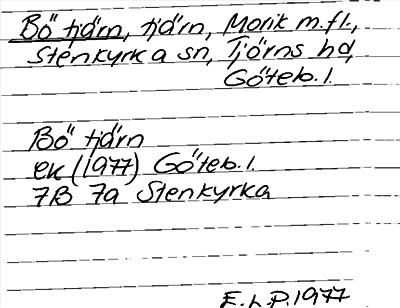 Bö tjärn, tjärn, Morik m.fl.,
Stenkyrka sn, Tjörns hd,
Göteb. l.
Bö tjärn
ek (1977) Göteb. l.
7B 7a Stenkyrka
E.h.P. 1977